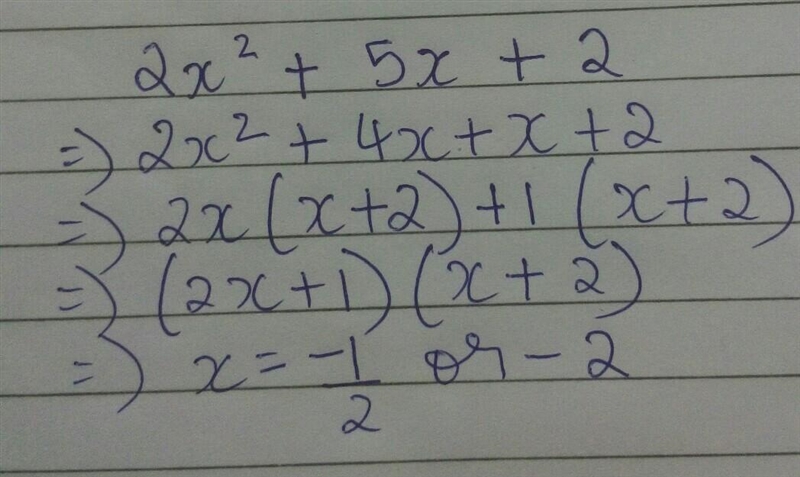 2x² + 5x + 2
=) 2x² + 4x + x + 2
=) 2x (x+2) + 1 (x+2)
=) (2x+1) (x+2)
=) x = -1/2 or -2